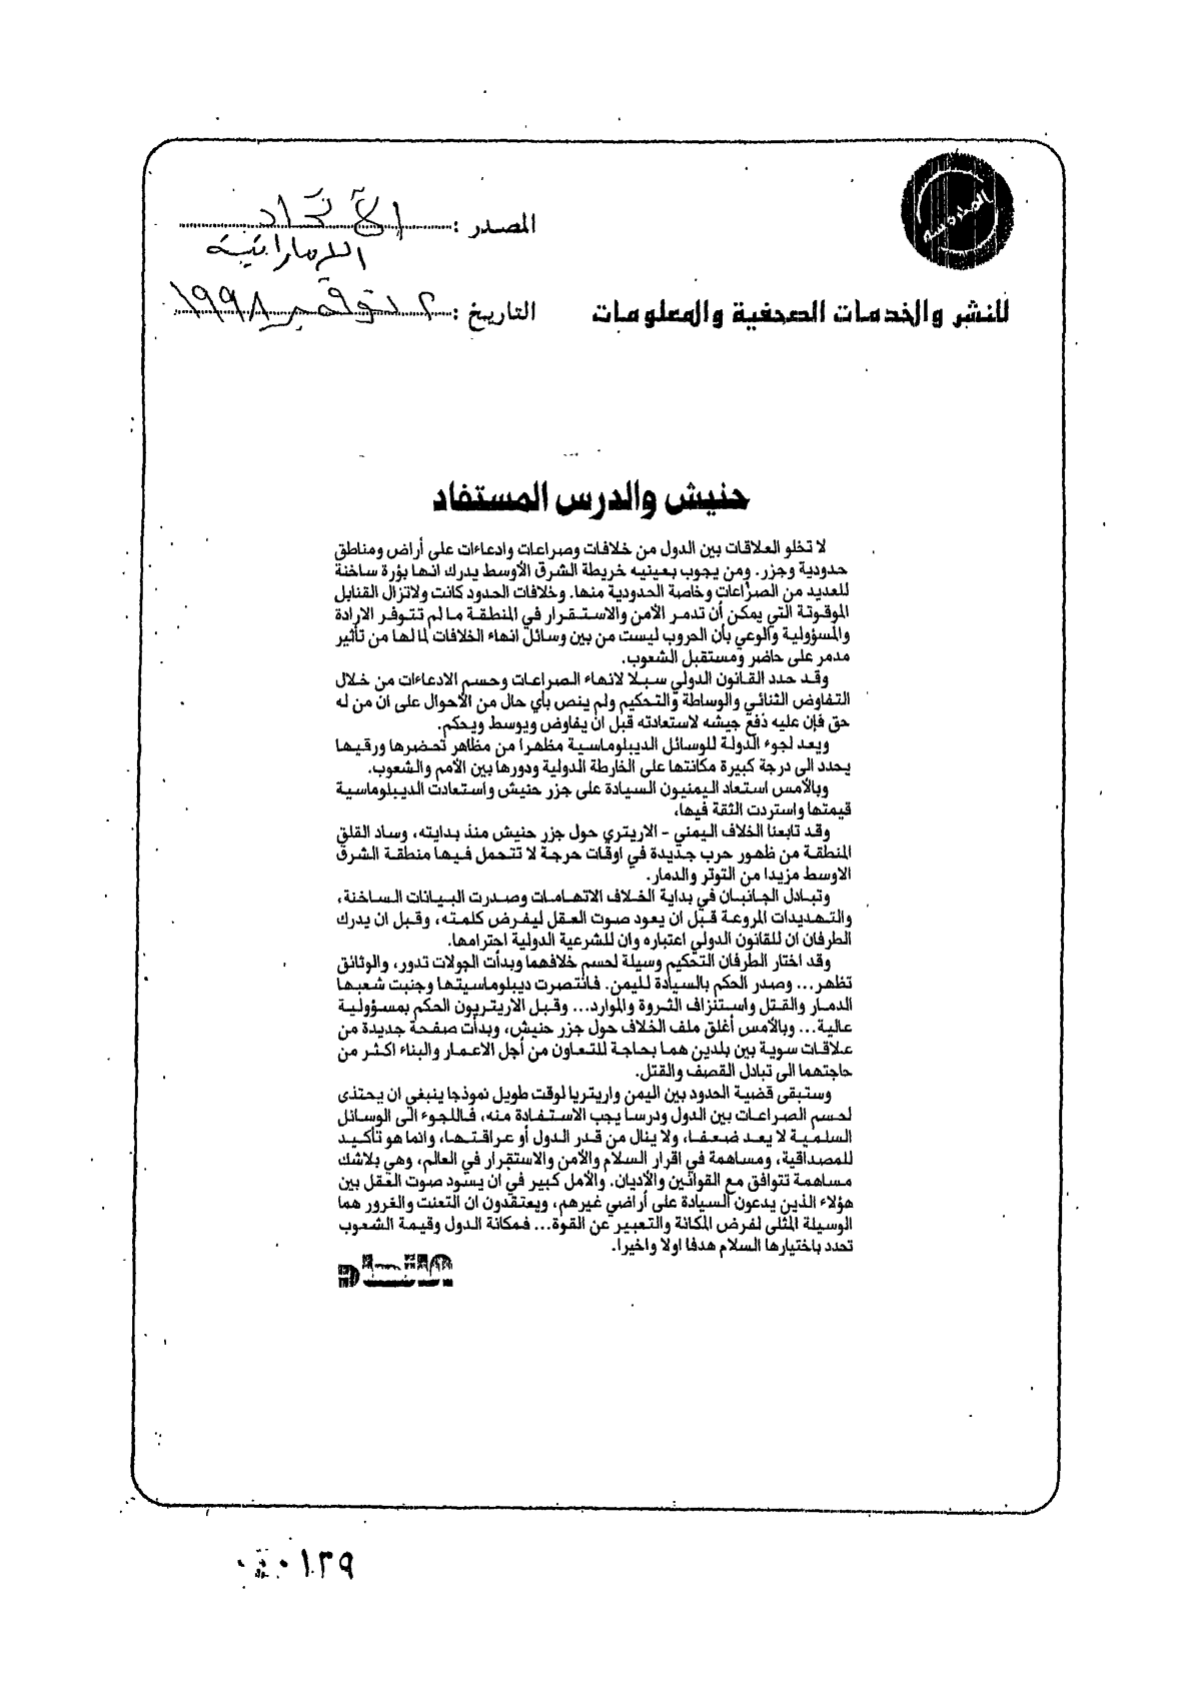 المصدر : الاتحاد
الاماراتية
للنشر والخدمات الصحفية والمعلومات
التاريخ : ٢ نوفمبر ١٩٩٨
حنيش والدرس المستفاد
لا تخلو العلاقات بين الدول من خلافات وصراعات وادعاءات على أراض ومناطق
حدودية وجزر. ومن يجوب بعينيه خريطة الشرق الأوسط يدرك انها بؤرة ساخنة
للعديد من الصراعات وخاصة الحدودية منها. وخلافات الحدود كانت ولاتزال القنابل
الموقوتة التي يمكن أن تدمر الأمن والاستقرار في المنطقة ما لم تتوفر الارادة
والمسؤولية والوعي بأن الحروب ليست من بين وسائل انهاء الخلافات لما لها من تأثير
مدمر على حاضر ومستقبل الشعوب.
وقد حدد القانون الدولي سبلا لانهاء الصراعات وحسم الادعاءات من خلال
التفاوض الثنائي والوساطة والتحكيم ولم ينص بأي حال من الأحوال على ان من له
حق فإن عليه دفع جيشه لاستعادته قبل ان يفاوض ويوسط ويحكم.
ويعد لجوء الدولة للوسائل الديبلوماسية مظهرا من مظاهر تحضرها ورقيها
يحدد الى درجة كبيرة مكانتها على الخارطة الدولية ودورها بين الأمم والشعوب.
وبالأمس استعاد اليمنيون السيادة على جزر حنيش واستعادت الديبلوماسية
قيمتها واستردت الثقة فيها،
وقد تابعنا الخلاف اليمني - الاريتري حول جزر حنيش منذ بدايته، وساد القلق
المنطقة من ظهور حرب جديدة في اوقات حرجة لا تتحمل فيها منطقة الشرق
الاوسط مزيدا من التوتر والدمار.
وتبادل الجانبان في بداية الخلاف الاتهامات وصدرت البيانات الساخنة،
والتهديدات المروعة قبل ان يعود صوت العقل ليفرض كلمته، وقبل ان يدرك
الطرفان ان للقانون الدولي اعتباره وان للشرعية الدولية احترامها.
وقد اختار الطرفان التحكيم وسيلة لحسم خلافهما وبدأت الجولات تدور، والوثائق
تظهر... وصدر الحكم بالسيادة لليمن. فانتصرت ديبلوماسيتها وجنبت شعبها
الدمار والقتل واستنزاف الثروة والموارد... وقبل الاريتريون الحكم بمسؤولية
عالية... وبالأمس أغلق ملف الخلاف حول جزر حنيش، وبدأت صفحة جديدة من
علاقات سوية بين بلدين هما بحاجة للتعاون من أجل الاعمار والبناء اكثر من
حاجتهما الى تبادل القصف والقتل.
وستبقى قضية الحدود بين اليمن واريتريا لوقت طويل نموذجا ينبغي ان يحتذى
لحسم الصراعات بين الدول ودرسا يجب الاستفادة منه، فاللجوء الى الوسائل
السلمية لا يعد ضعفا، ولا ينال من قدر الدول أو عراقتها، وانما هو تأكيد
للمصداقية، ومساهمة في اقرار السلام والأمن والاستقرار في العالم، وهي بلاشك
مساهمة تتوافق مع القوانين والأديان. والأمل كبير في ان يسود صوت العقل بين
هؤلاء الذين يدعون السيادة على أراضي غيرهم، ويعتقدون ان التعنت والغرور هما
الوسيلة المثلى لفرض المكانة والتعبير عن القوة... فمكانة الدول وقيمة الشعوب
تحدد باختيارها السلام هدفا اولا واخيرا.
٠١٣٩